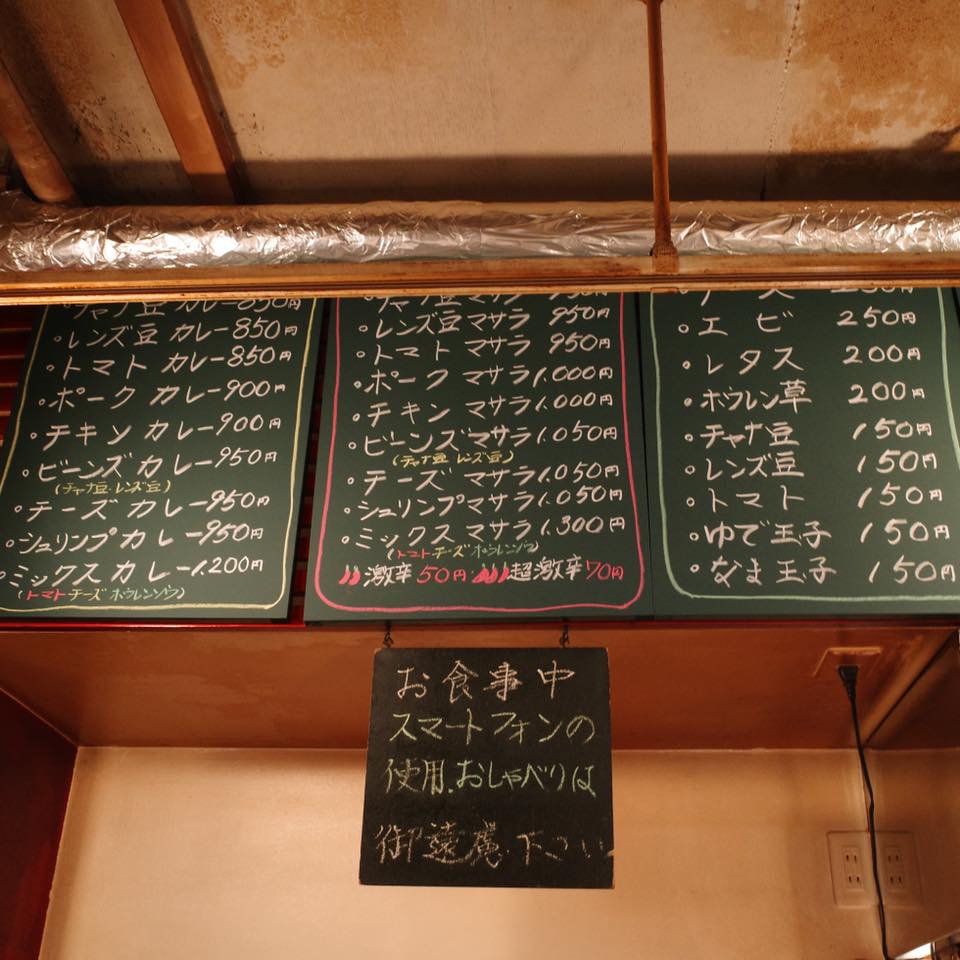 チャナ豆カレー 850円
・レンズ豆 カレー 850円
・トマト カレー 850円
・ポーク カレー 900円
・チキン カレー 900円
・ビーンズ カレー 950円
(チャナ豆・レンズ豆)
・チーズ カレー 950円
・シュリンプカレー 950円
・ミックス カレー 1.200円
(トマトチーズ ホウレンソウ)
チャナ豆 マサラ 950円
・レンズ豆 マサラ 950円
・トマト マサラ 950円
・ポーク マサラ 1.000円
・チキン マサラ 1.000円
・ビーンズ マサラ 1.050円
(チャナ豆 レンズ豆)
・チーズ マサラ 1.050円
・シュリンプマサラ 1.050円
・ミックス マサラ 1.300円
(トマトチーズ ホウレンソウ)
激辛50円・超激辛70円
・エビ 250円
・レタス 200円
・ホウレン草 200円
・チャナ豆 150円
・レンズ豆 150円
・トマト 150円
・ゆで玉子 150円
・なま玉子 150円
お食事中
スマートフォンの
使用.おしゃべりは
御遠慮下さい